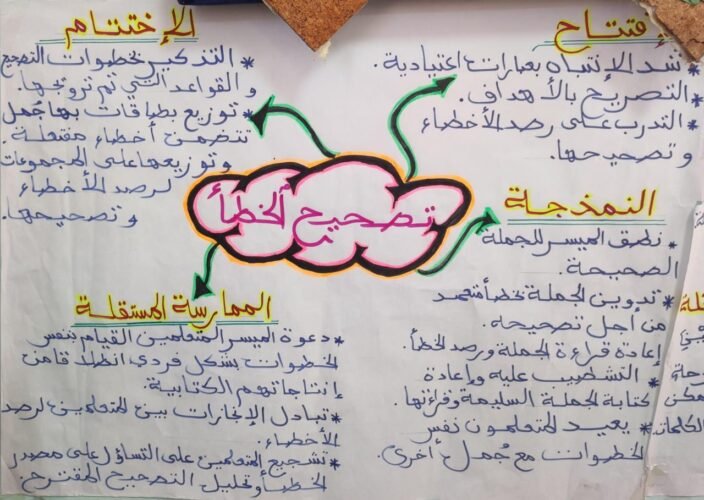 تصحيح الخطأ
إفتتاح
* شد الإنتباه بعبارات اعتيادية.
* التصريح بالأهداف.
* التدرب على رصد الأخطاء
وتصحيحها.
النمذجة
* نطق الميسر للجملة
الصحيحة.
* تدوين الجملة بخطأ متعمد
من أجل تصحيحه.
* إعادة قراءة الجملة ورصد الخطأ.
* التشطيب عليه وإعادة
كتابة الجملة السليمة وقراءتها.
* يعيد المتعلمون نفس
الخطوات مع جُمل أخرى.
الممارسة المستقلة
* دعوة الميسر المتعلمين القيام بنفس
الخطوات بشكل فردي انطلاقا من
إنتاجاتهم الكتابية.
* تبادل الإنجازات بين المتعلمين لرصد
الأخطاء.
* تشجيع المتعلمين على التساؤل على مصدر
الخطأ وتحليل التصحيح المقترح.
الإختتام
* التذكير بخطوات التصحيح
والقواعد التي تم ترويجها.
* توزيع بطاقات بها جُمل
تتضمن أخطاء مفتعلة.
وتوزيعها على المجموعات
لرصد الأخطاء
وتصحيحها.